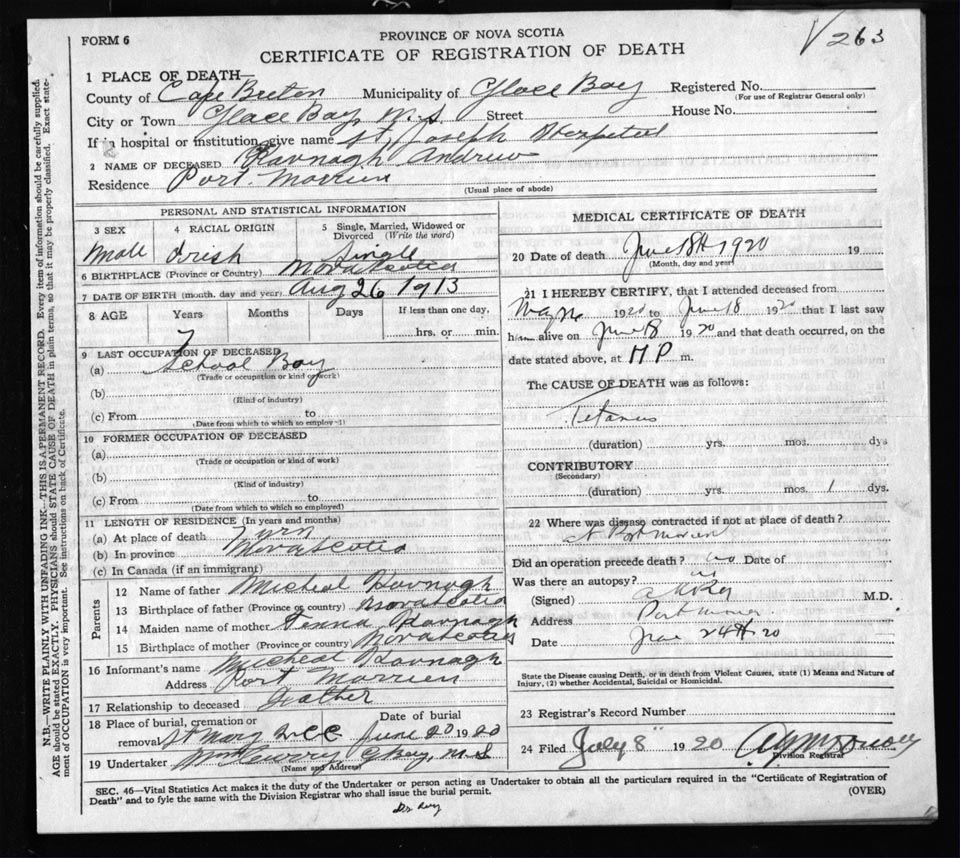 FORM 6
PROVINCE OF NOVA SCOTIA
CERTIFICATE OF REGISTRATION OF DEATH
√263
1 PLACE OF DEATH—
County of Cape Breton Municipality of Glace Bay Registered No.
(For use of Registrar General only)
City or Town Glace Bay N.S. Street House No.
If in hospital or institution, give name St. Joseph
2 NAME OF DECEASED Kavnagh, Andrew
Residence Port. Morrien
(Usual place of abode)
PERSONAL AND STATISTICAL INFORMATION
3 SEX 4 RACIAL ORIGIN 5 Single, Married, Widowed or Divorced (Write the word)
Mall Irish Single
6 BIRTHPLACE (Province or Country) Nova Scotia
7 DATE OF BIRTH (month, day and year) Aug 26 1913
8 AGE Years Months Days If less than one day,
7 hrs. or min.
9 LAST OCCUPATION OF DECEASED
(a) School Boy
(Trade or occupation or kind of work)
(b)
(Kind of industry)
(c) From to
(Date from which to which so employed)
10 FORMER OCCUPATION OF DECEASED
(a)
(Trade or occupation or kind of work)
(b)
(Kind of industry)
(c) From to
(Date from which to which so employed)
11 LENGTH OF RESIDENCE (In years and months)
(a) At place of death 7 yrs
(b) In province Nova Scotia
(c) In Canada (if an immigrant)
Parents
12 Name of father Micheal Kavnagh
13 Birthplace of father (Province or country) Nova Scotia
14 Maiden name of mother Kavnagh
15 Birthplace of mother (Province or country) Nova Scotia
16 Informant's name Micheal Kavnagh
Address Port Morrien
17 Relationship to deceased Father
18 Place of burial, cremation or removal St Mary Date of burial June 20 1920
19 Undertaker G Bay, N.S
(Name and Address)
MEDICAL CERTIFICATE OF DEATH
20 Date of death June 18th 1920 19
(Month, day and year)
21 I HEREBY CERTIFY, that I attended deceased from
1920 to June 18 1920 that I last saw
him alive on June 18 1920 and that death occurred, on the
date stated above, at P m.
The CAUSE OF DEATH was as follows:
Tetanus
(duration) yrs. mos. dys
CONTRIBUTORY
(Secondary)
(duration) yrs. mos. 1 dys.
22 Where was disease contracted if not at place of death?
At Port Morien
Did an operation precede death? no Date of
Was there an autopsy? no
(Signed) M.D.
Address Port Morien
Date June 24th 20
State the Disease causing Death, or in death from Violent Causes, state (1) Means and Nature of Injury, (2) whether Accidental, Suicidal or Homicidal.
23 Registrar's Record Number
24 Filed July 8 1920
Division Registrar
SEC. 46—Vital Statistics Act makes it the duty of the Undertaker or person acting as Undertaker to obtain all the particulars required in the "Certificate of Registration of
Death" and to fyle the same with the Division Registrar who shall issue the burial permit. (OVER)
N.B.—WRITE PLAINLY WITH UNFADING INK—THIS IS A PERMANENT RECORD. Every item of information should be carefully supplied.
AGE should be stated EXACTLY. PHYSICIANS should STATE CAUSE OF DEATH in plain terms, so that it may be properly classified. Exact statement of OCCUPATION is very important. See instructions on back of Certificate.